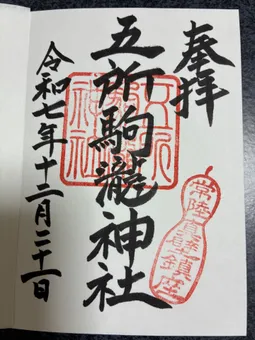 奉拝
常陸真壁鎮座
五所駒瀧神社
令和七年十二月二十一日